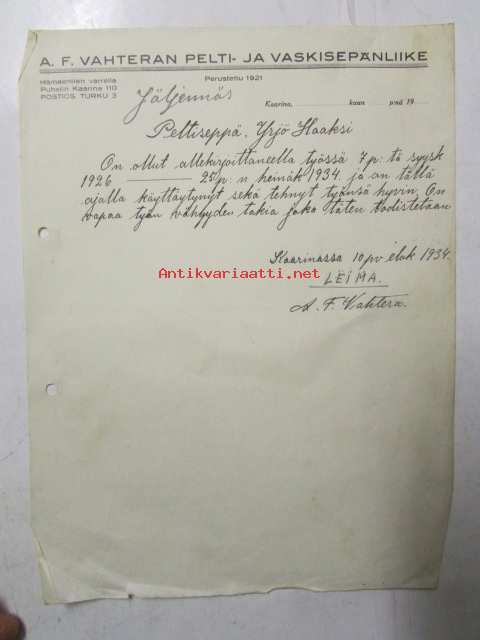 A. F. VAHTERAN PELTI- JA VASKISEPÄNLIIKE
Hämeentien varrella
Puhelin Kaarina 110
POSTIOS. TURKU 3
Perustettu 1921
Jäljennös
Kaarina, kuun p:nä 19
Peltiseppä, Yrjö Haaksi
On ollut allekirjoittaneella työssä 7 p:tä syysk
1926 ——— 25 p:n heinäk 1934 ja on tällä
ajalla käyttäytynyt sekä tehnyt työnsä hyvin. On
vapaa työn vähyyden takia joka täten todistetaan
Antikvariaatti.net
Kaarinassa 10 pv elok 1934.
LEIMA.
A. F. Vahtera.